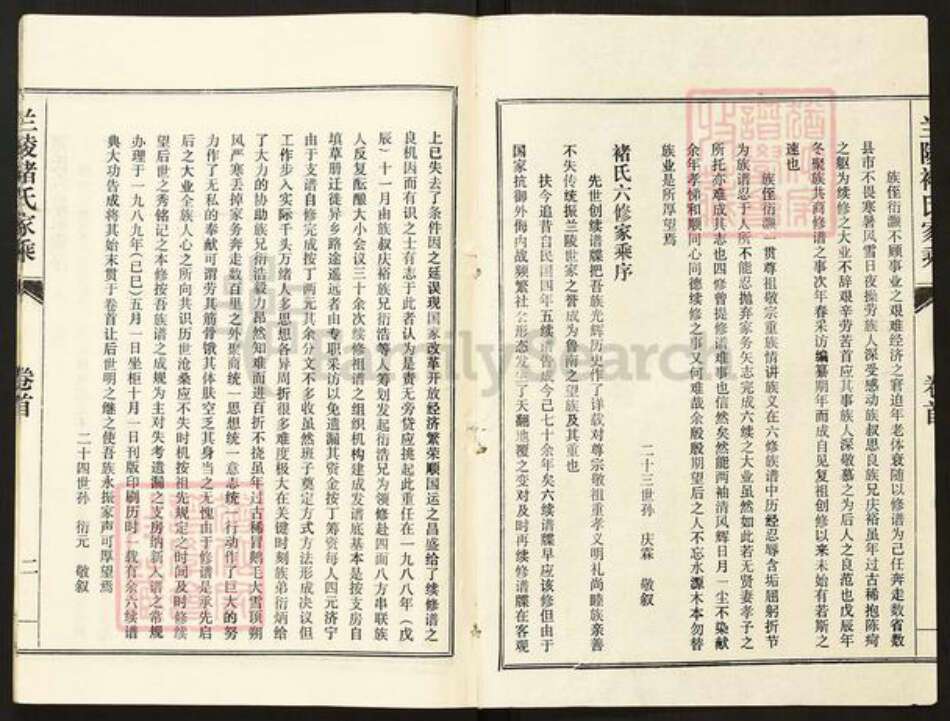 兰陵褚氏家乘
卷首
族侄衍灏不顾事业之艰难经济之窘迫年老体衰随以修谱为己任奔走数省数
县市不畏寒暑风雪日夜操劳族人深受感动族叔思良族兄庆裕虽年过古稀抱陈疴
之躯为续修之大业不辞艰辛劳苦首应其事族人深敬慕之为后人之良范也戊辰年
冬聚族共商修谱之事次年春采访编纂期年而成自见复祖创修以来未始有若斯之
速也
族侄衍灏一贯尊祖敬宗重族情讲族义在六修族谱中历经忍辱含垢屈躬折节
为族谱忍于人所不能忍抛弃家务矢志完成六续之大业虽然如此若无贤妻孝子之
所托亦难成其志也四修曾提修谱难事也信然矣然能两袖清风辉日月一尘不染献
余年孝悌和顺同心同德续修之事又何难哉余殷殷期望后之人不忘水源木本勿替
族业是所厚望焉
二十三世孙 庆霖 敬叙
褚氏六修家乘序
先世创续谱牒把吾族光辉历史作了详载对尊宗敬祖重孝义明礼尚睦族亲善
不失传统振兰陵世家之誉成为鲁南之望族及其重也
扶今追昔自民国四年五续谱告成迄今己七十余年矣六续谱牒早应该修但由于
国家抗御外侮内战频繁社会形态发生了天翻地覆之变对及时再续修谱牒在客观
上已失去了条件因之延误现国家改革开放经济繁荣顺国运之昌盛给了续修谱之
良机因而有识之士有志于此者认为是责无旁贷应挑起此重任在一九八八年（戊
辰）十一月由族叔庆裕族兄衍浩等人筹划发起衍浩兄为领修赴四面八方串联族
人反复酝酿大小会议三十余次续修祖谱之组织机构建成发谱底基本是按支房自
填草册迁徙异乡路途遥远者由专职采访以免遗漏其资金按丁筹资每人四元济宁
由于支谱自修完成按丁两元其余分文不多收虽然班子奠定方式方法形成决议但
工作步入实际千头万绪人多思想各异周折很多难度极大在关键时刻族弟衍炳给
了大力的协助族兄衍浩毅力昂然知难而进百折不挠虽年过古稀冒鹅毛大雪顶朔
风严寒丢掉家务奔走数百里之外聚商统一思想统一意志统一行动作了巨大的努
力作了无私的奉献可谓劳其筋骨饿其体肤空乏其身当之无愧由于修谱是承先启
后之大业全族人心之所向共识历世沧桑应不失时机按祖先规定之时间及时修续
望后世之秀铭记之本修按吾族谱之成规为主对失考遗漏之支房纳新入谱之常规
办理于一九八九年(己巳)五月一日坐柜十月一日刊版印刷历时一载有余六续谱
典大功告成将其始末贯于卷首让后世明之继之使吾族永振家声可厚望焉
二十四世孙 衍元 敬叙
兰陵褚氏家乘
卷首
二
FamilySearch